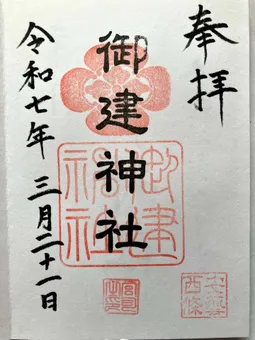 奉拝
御建神社
令和七年 三月二十一日
御建神社
安藝西條
宮司之印